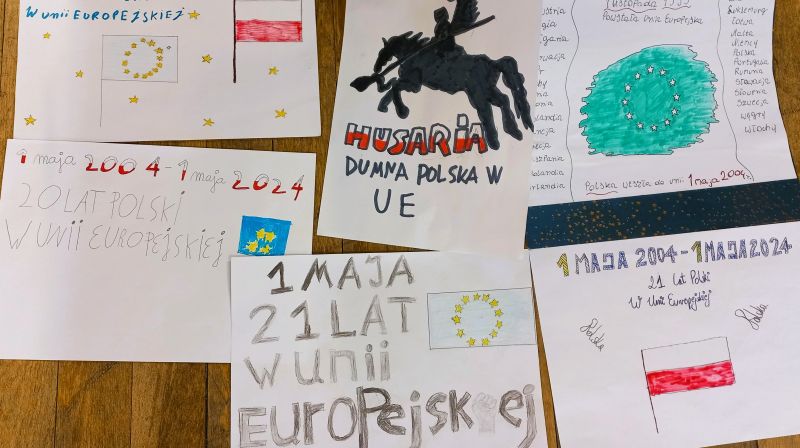 W UNII EUROPEJSKIEJ
HUSARIA
DUMNA POLSKA W
UE
listopada 1992
Powstała Unia Europejska
Luksemburg
Łotwa
Malta
Niemcy
Polska
Portugalia
Rumunia
Słowacja
Słowenia
Szwecja
Węgry
Włochy
Polska weszła do unii 1 maja 2004r.
1 maja 2004 - 1 maja 2024
20 LAT POLSKI
W UNII EUROPEJSKIEJ
1 MAJA
21 LAT
W UNII
EUROPEJSKIEJ
1 MAJA 2004 - 1 MAJA 2024
21 lat Polski
W Unii Europejskiej
Polska
Polska